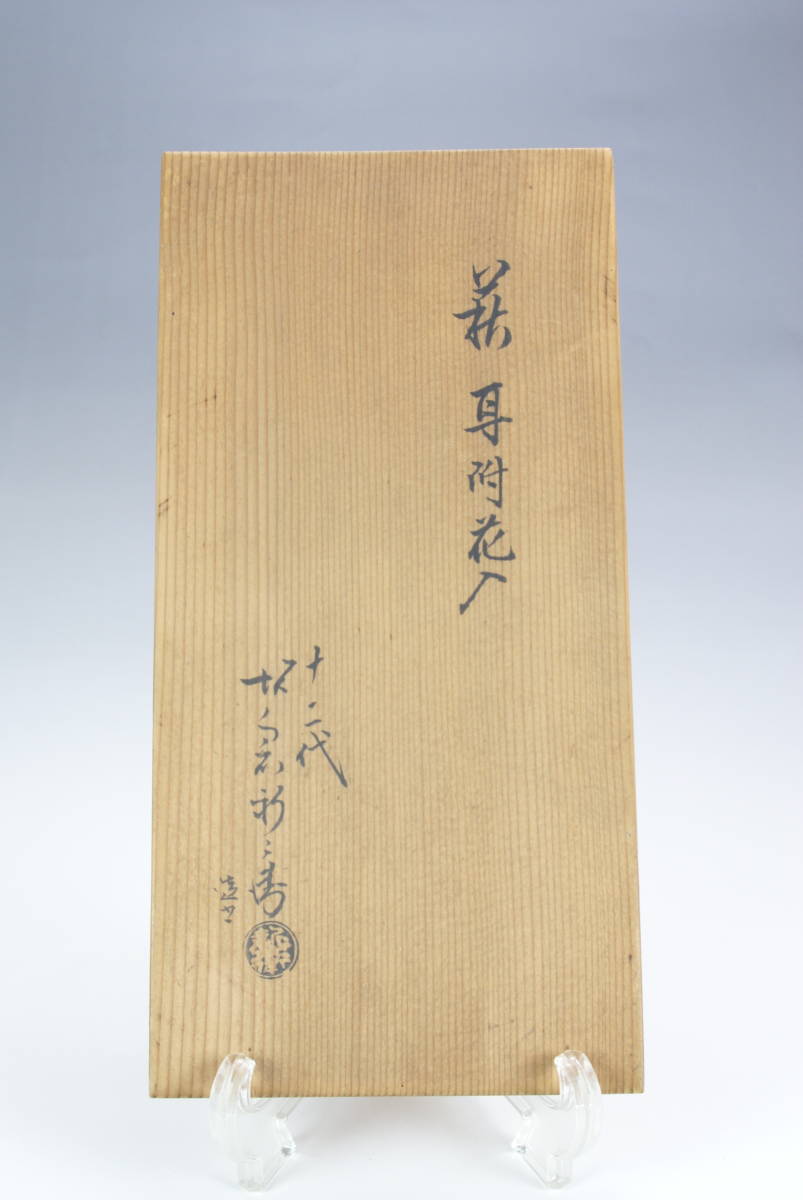 萩 耳附花入
十二代
坂高麗左衛門
造之